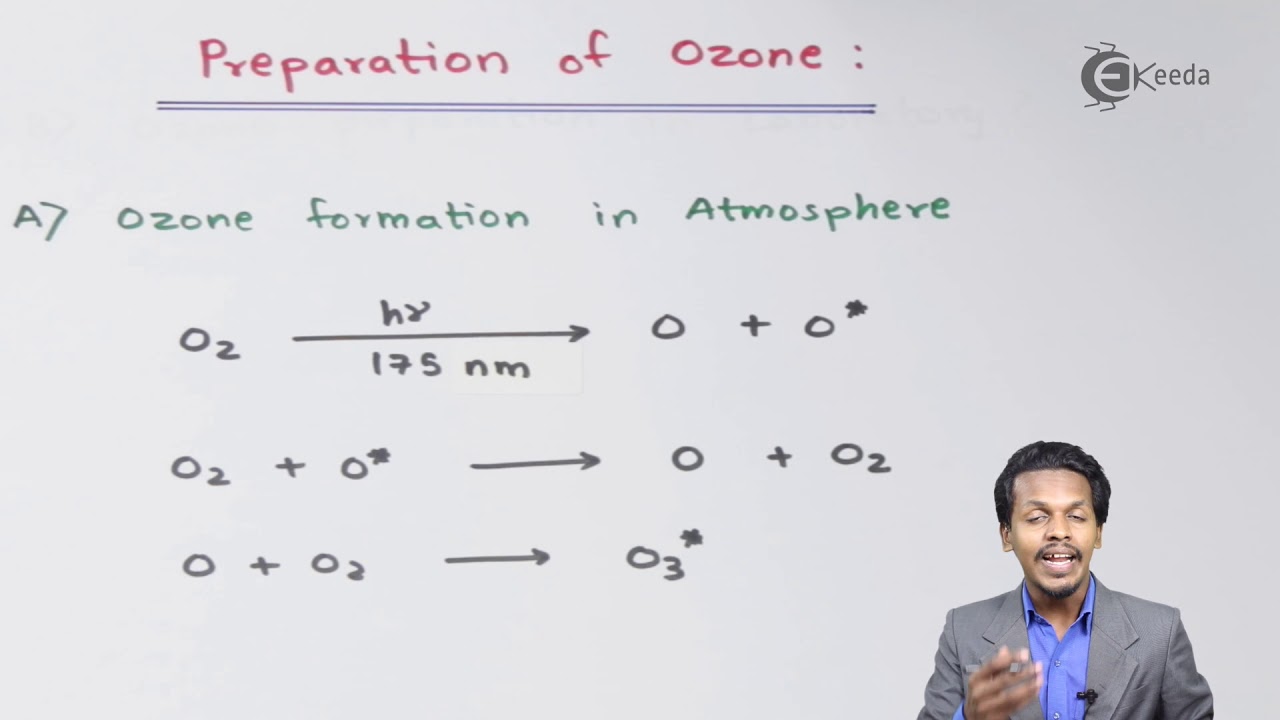 Preparation of Ozone :
EKeeda
A) Ozone formation in Atmosphere
hν
O₂ ⟶ O + O*
175 nm
O₂ + O* ⟶ O + O₂
O + O₂ ⟶ O₃*